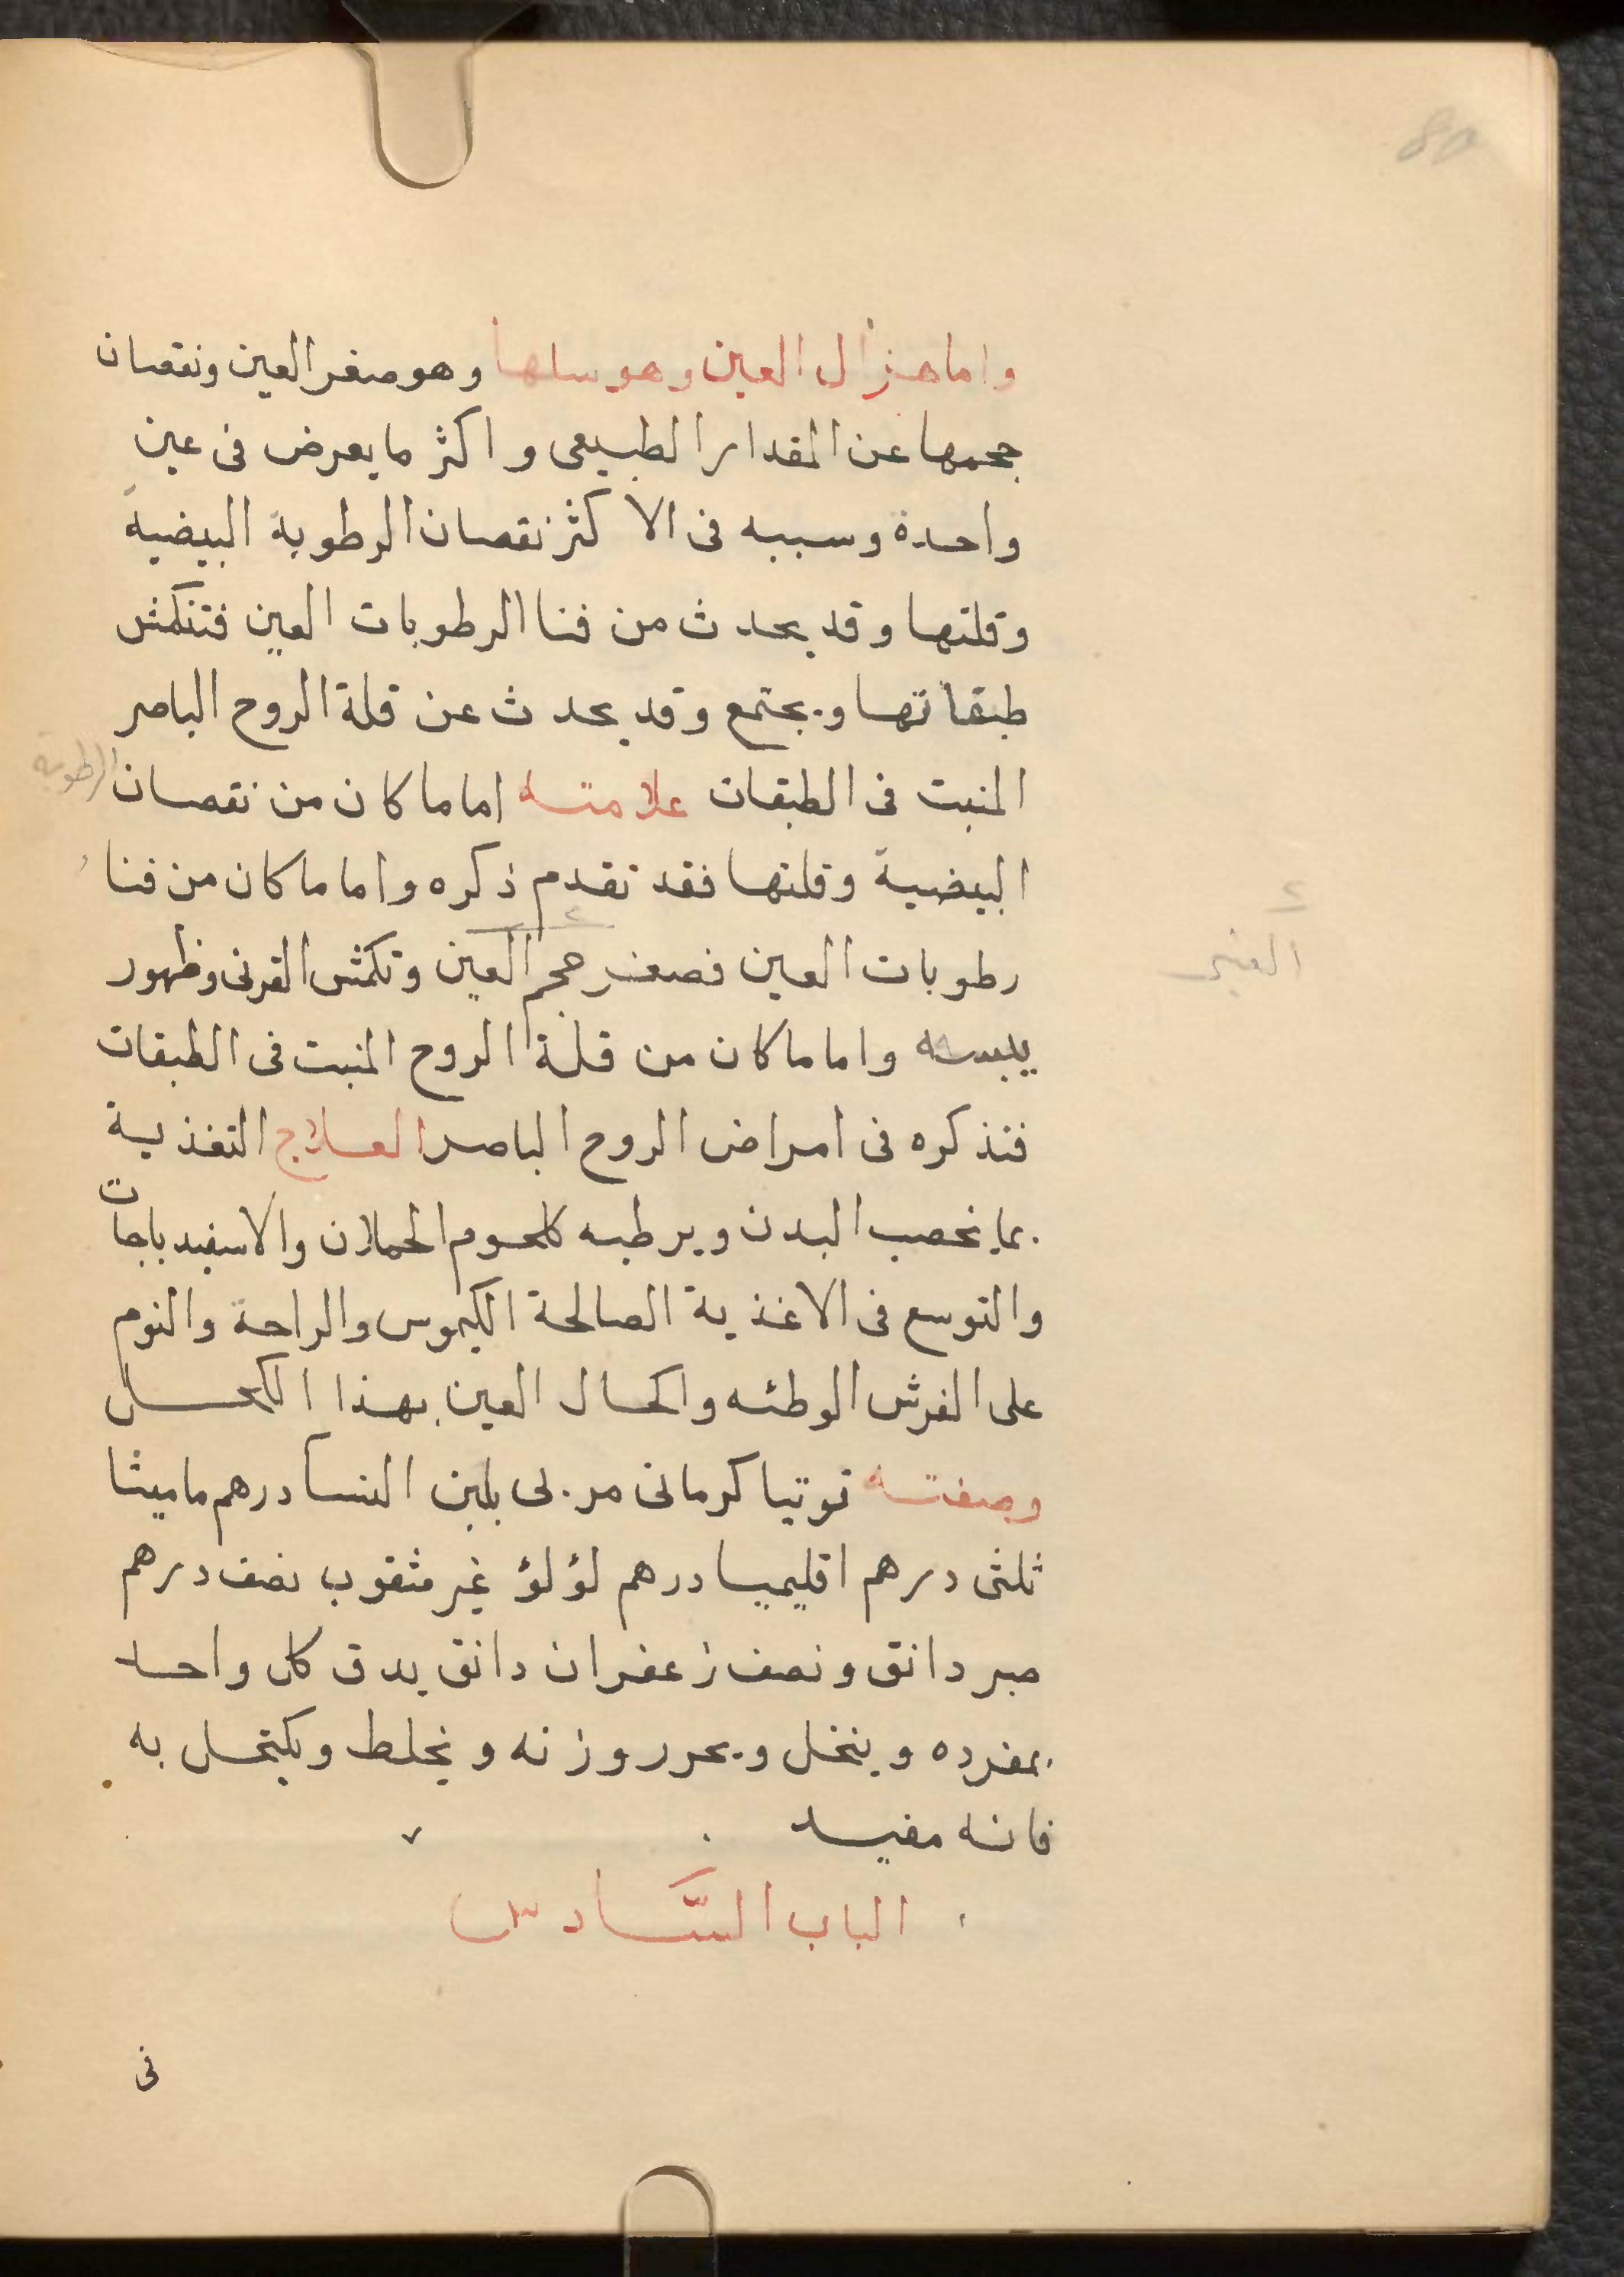 واما هزال العين وهو سلها وهو صغر العين ونقصان
حجمها عن المقدار الطبيعى واكثر ما يعرض فى عين
واحدة وسببه فى الاكثر نقصان الرطوبة البيضية
وقلتها وقد يحدث من فنا الرطوبات العين فتنكمش
طبقاتها ويجتمع وقد يحدث عن قلة الروح الباصر
المنبت فى الطبقات علامته اما ما كان من نقصان الرطوبة
البيضية وقلتها فقد تقدم ذكره واما ما كان من فناء
رطوبات العين فصغر حجم العين وتكمش القرنى وظهور
يبسه واما ما كان من قلة الروح المنبت فى الطبقات
فنذكره فى امراض الروح الباصر العلاج التغذية
بما يخصب البدن ويرطبه كلحوم الحملان والاسفيدباجات
والتوسع فى الاغذية الصالحة الكيموس والراحة والنوم
على الفرش الوطئه واكحال العين بهذا الكحل
وصفته توتيا كرمانى مربى بلبن النسا درهم ماميثا
ثلثى درهم اقليميا درهم لؤلؤ غير مثقوب نصف درهم
صبر دانق ونصف زعفران دانق يدق كل واحد
بمفرده وينخل ويحرر وزنه ويخلط ويكتحل به
فانه مفيد
الباب السادس
فى